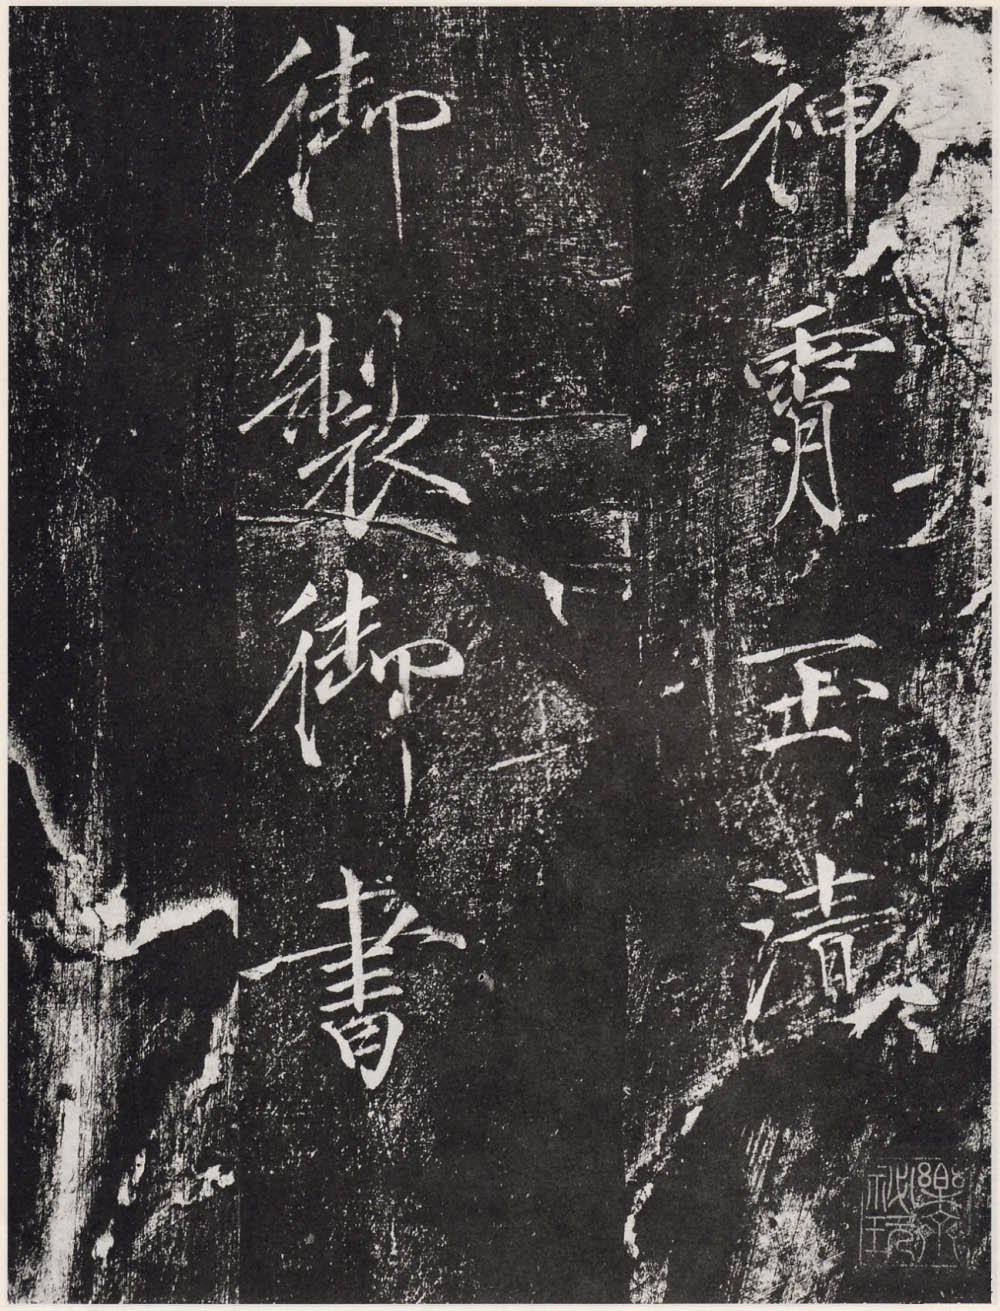 神霄玉清
御製御書